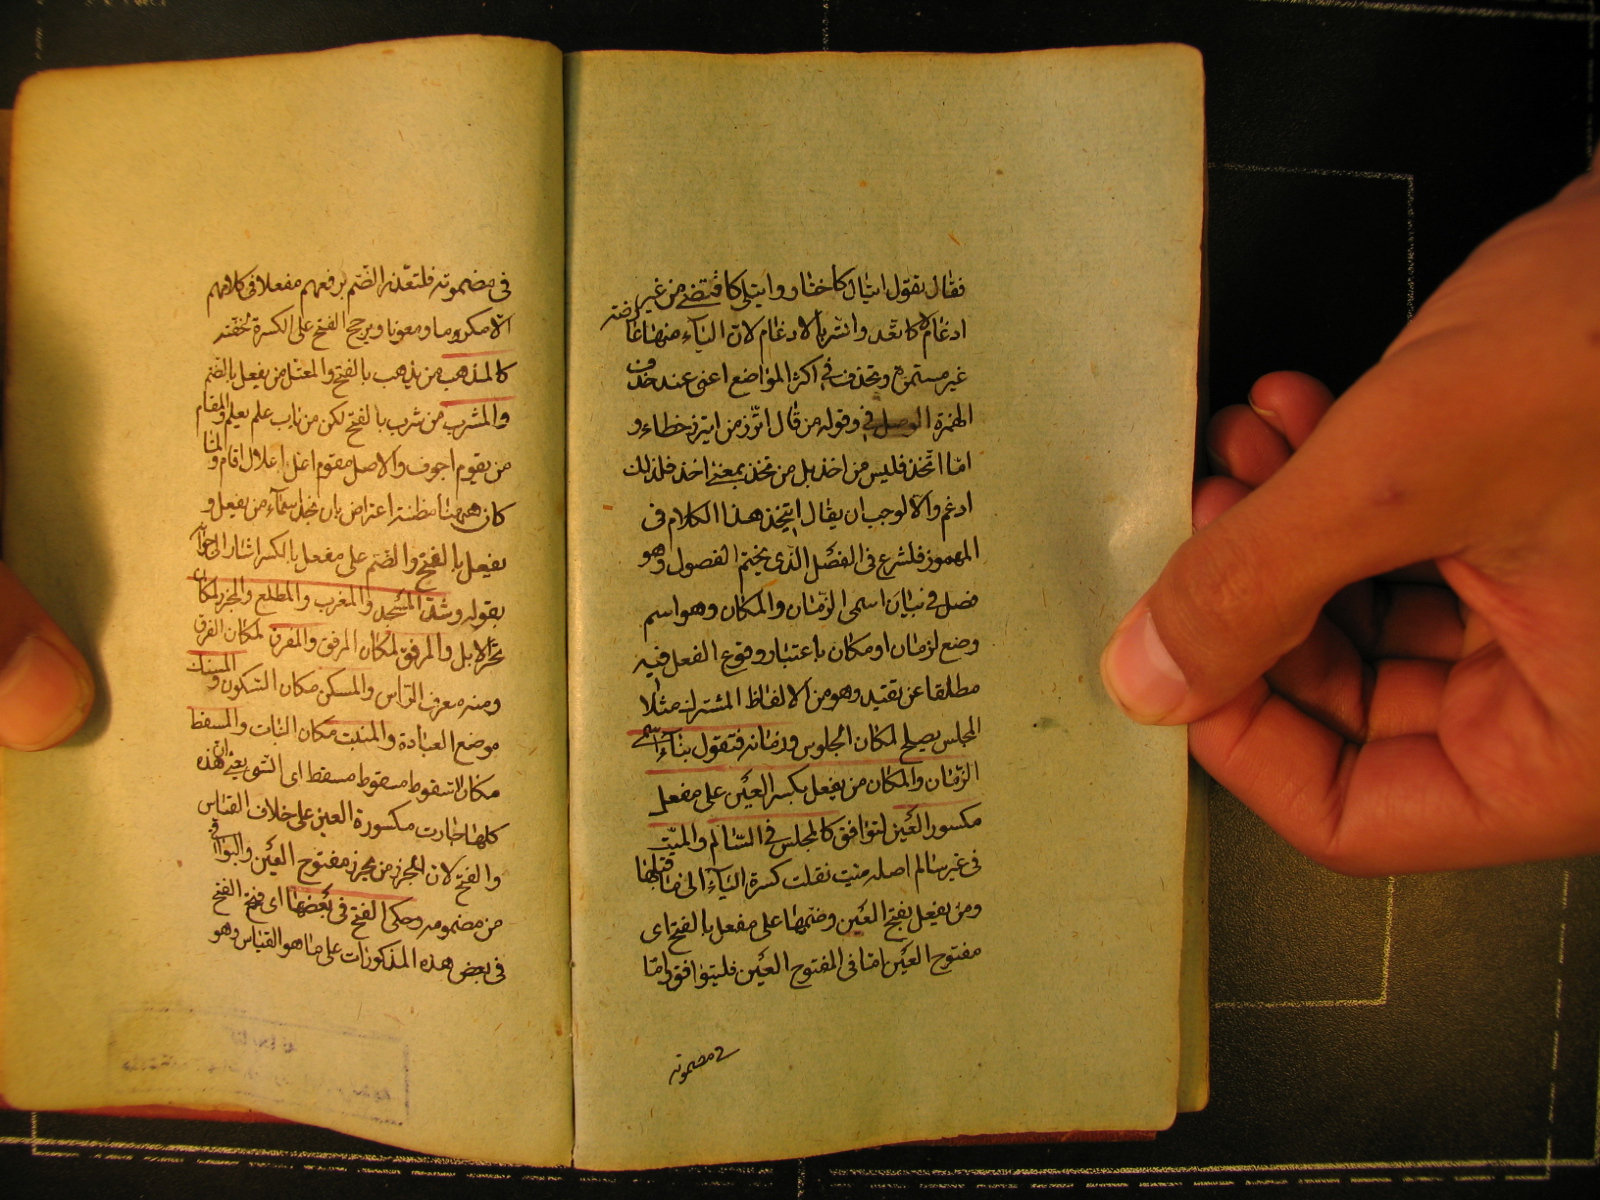 فقال بقول ايتال كاختار وايتلى كاقتضى من غير
ادغام لا كاتعد واتسر بالادغام لان الياء منهما عارضة
غير مستمرة وتحذف في اكثر المواضع اعنى عند حذف
الهمزة الوصل في وقوله من قال اتزر من ايتزر خطاء و
امّا اتّخذ فليس من اخذ بل من تخذ بمعنى اخذ فلذلك
ادغم والّا لوجب ان يقال ايتخذ هذا الكلام فى
المهموز فلشرع فى الفصل الّذى يختم الفصول وهو
فصل فى بيان اسمى الزّمان والمكان وهو اسم
وضع لزمان او مكان باعتبار وقوع الفعل فيه
مطلقا عن تقييد وهو من الالفاظ المشتركة مثلا
المجلس يصلح لمكان الجلوس وزمانه فتقول بناء اسمى
الزّمان والمكان من يفعل بكسر العين على مفعل
مكسور العين لتوافق كالمجلس فى السّالم والمبيت
فى غير سالم اصله مبيت نقلت كسرة الياء الى ما قبلها
ومن يفعل بفتح العين وضمها على مفعل بالفتح اى
مفتوح العين امّا فى المفتوح العين فليتوافق وامّا
فى مضمومه
فى مضمومه فلتعذر الضّم لرفضهم مفعلا فى كلامهم
الّا مكروما ومعونا ويرجح الفتح على الكسرة لخفّته
كالمذهب من يذهب بالفتح والمقتل من يقتل بالضّم
والمشرب من شرب بالفتح لكن من باب علم يعلم والمقام
من يقوم اجوف والاصل مقوم اعل اعلال اقام ولما
كان ههنا مظنة اعتراض بان نجد اسماء من يفعل و
يفعل بالفتح والضّم على مفعل بالكسر اشار الى جوابه
بقوله وشذّ المسجد والمغرب والمطلع والمجزر لمكان
نحر الابل والمرفق لمكان الرفق والمفرق لمكان الفرق
ومنه مفرق الرّاس والمسكن مكان السّكون والمنسك
موضع العبادة والمنبت مكان النّبات والمسقط
مكان السّقوط مسقوط مسقط اى الشئ يعنى ان هذه
كلها جاءت مكسورة العين على خلاف القياس
والفتح لان المجزر من يجزر مفتوح العين والبواقى
من مضمومه وحكى الفتح فى بعضها اى فتح الفتح
فى بعض هذه المذكورات على ما هو القياس وهو